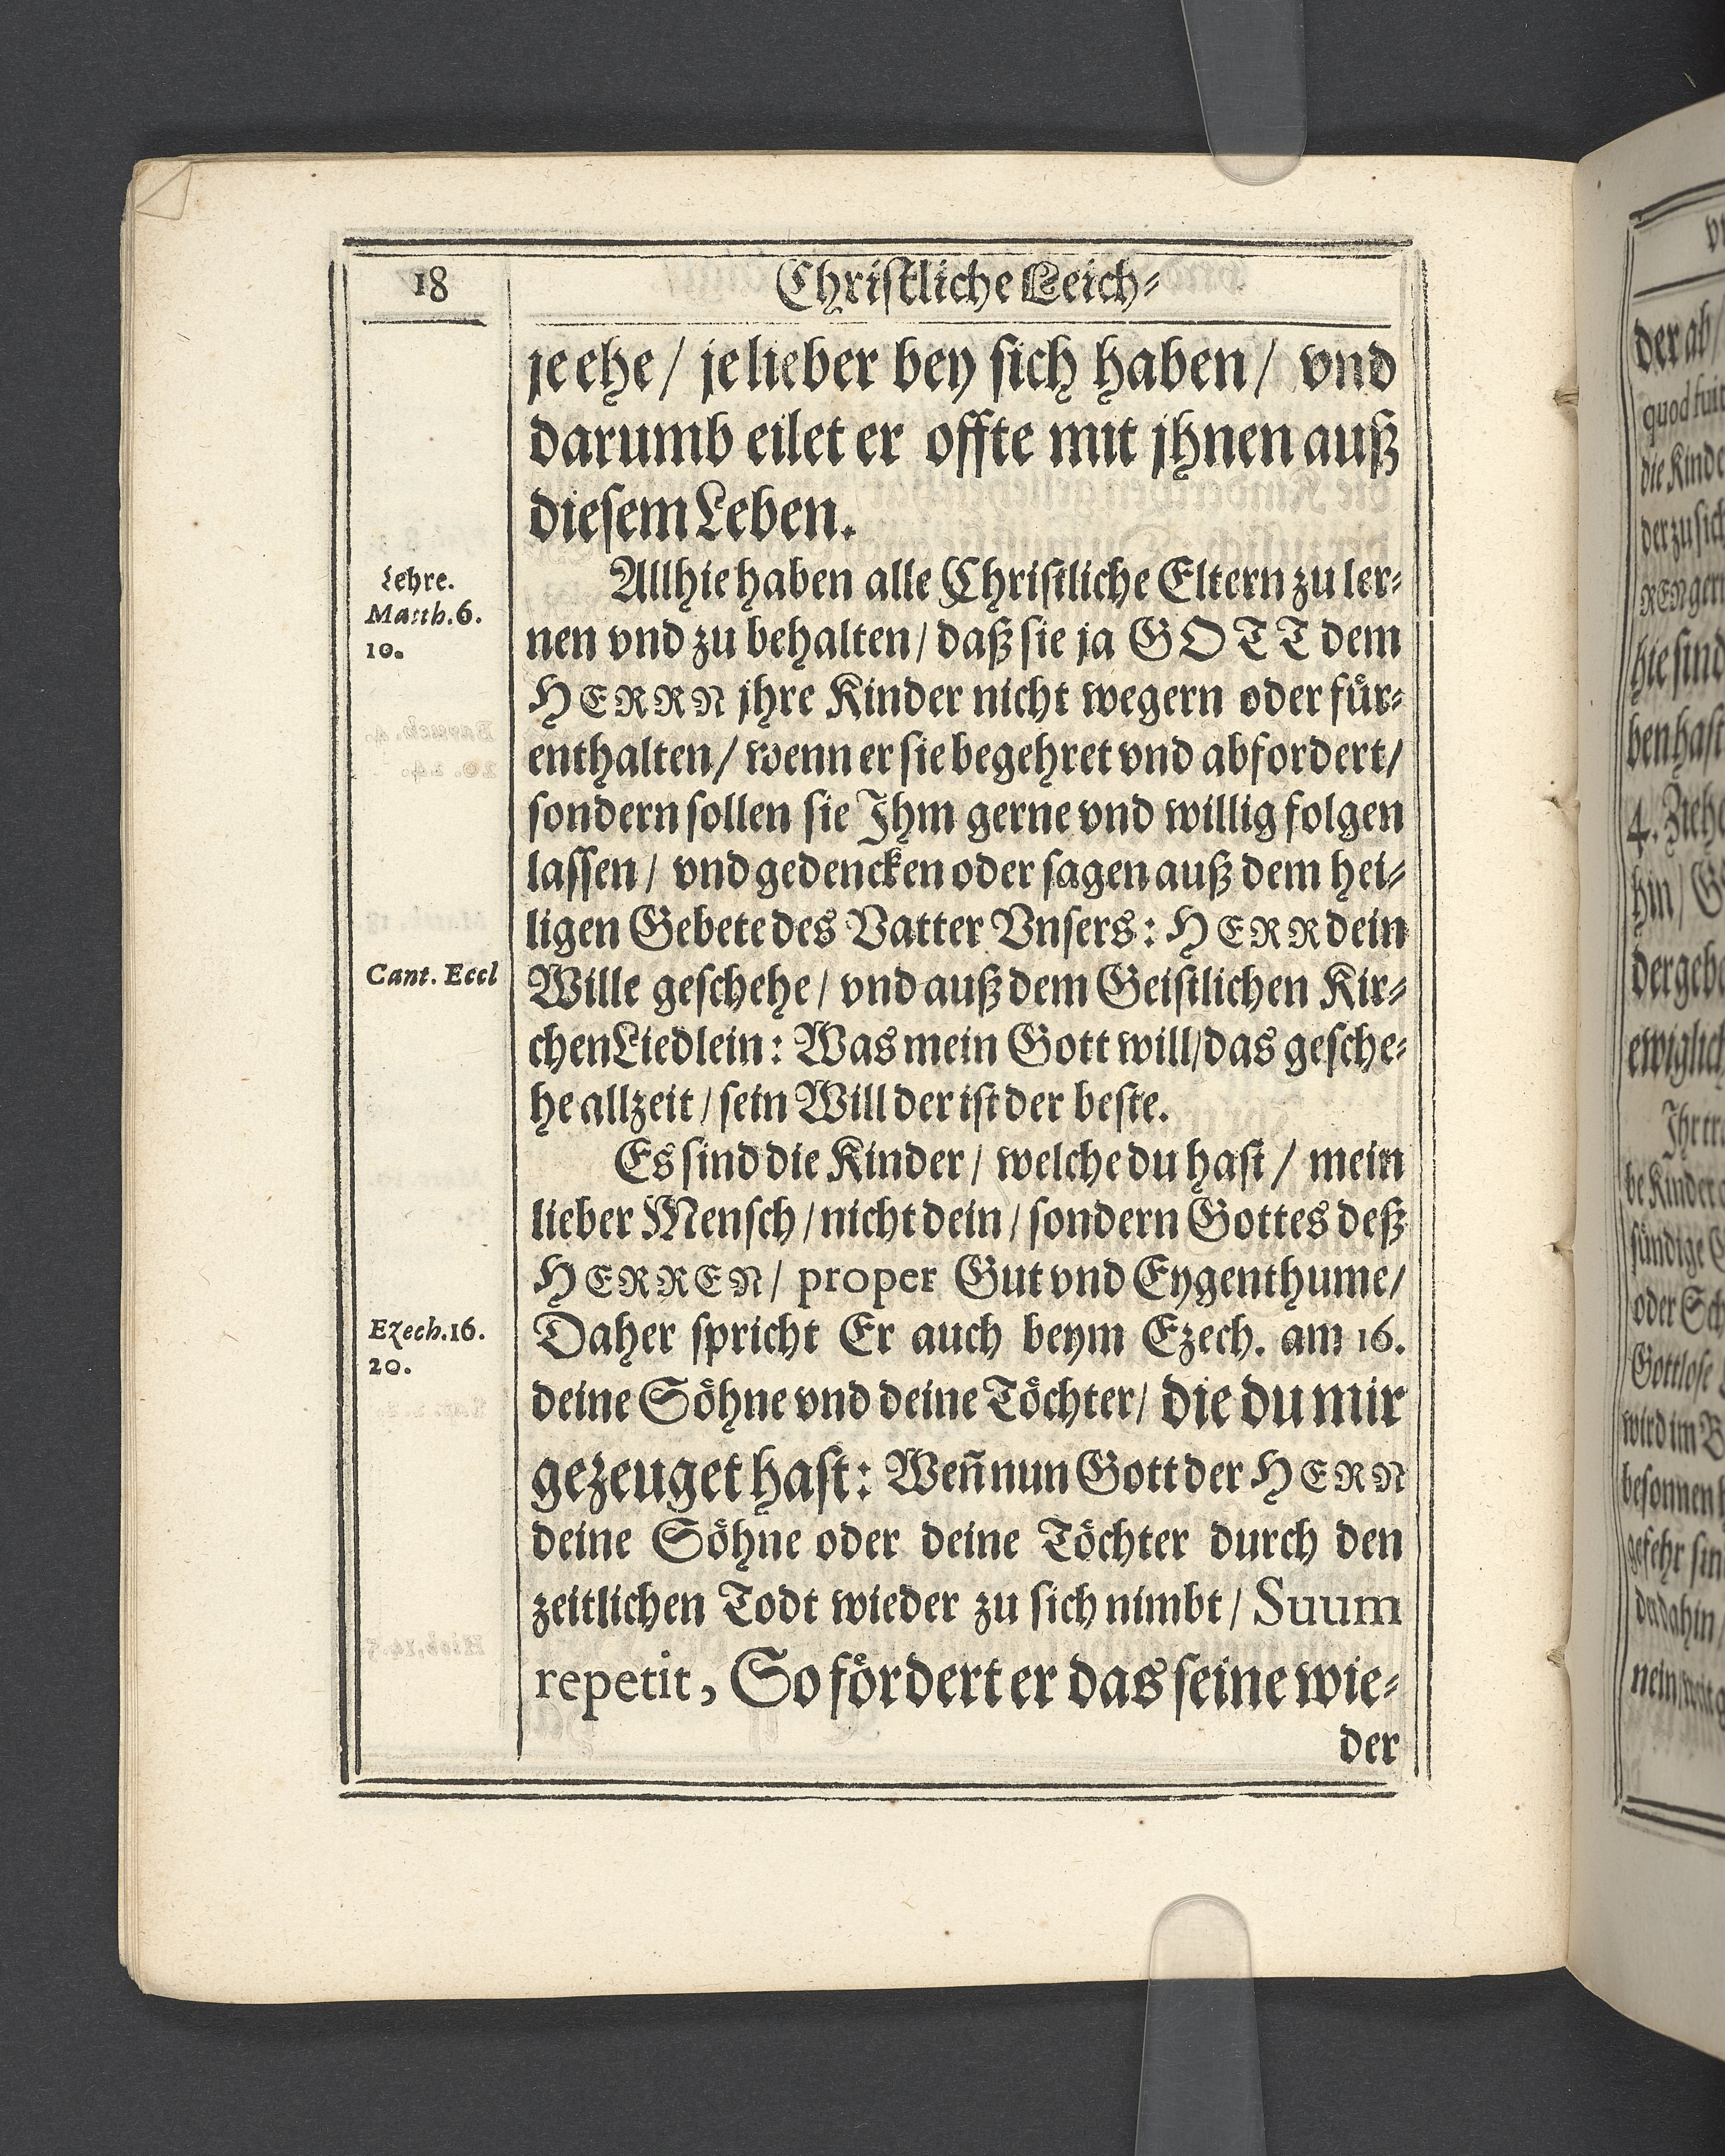 18
Christliche Leich-
je ehe / je lieber bey sich haben / vnd
darumb eilet er offte mit jhnen auß
diesem Leben.
Lehre.
Matth. 6.
10.
Allhie haben alle Christliche Eltern zu ler-
nen vnd zu behalten / daß sie ja GOTT dem
HERRN jhre Kinder nicht wegern oder für-
enthalten / wenn er sie begehret vnd abfordert /
sondern sollen sie Jhm gerne vnd willig folgen
lassen / vnd gedencken oder sagen auß dem hei-
ligen Gebete des Vatter Vnsers: HERR dein
Cant. Eccl
Wille geschehe / vnd auß dem Geistlichen Kir-
chen Liedlein: Was mein Gott will / das gesche-
he allzeit / sein Will der ist der beste.
Es sind die Kinder / welche du hast / mein
lieber Mensch / nicht dein / sondern Gottes deß
HERREN / proper Gut vnd Eygenthume /
Ezech. 16.
20.
Daher spricht Er auch beym Ezech. am 16.
deine Söhne vnd deine Töchter / die du mir
gezeuget hast: Weñ nun Gott der HERN
deine Söhne oder deine Töchter durch den
zeitlichen Todt wieder zu sich nimbt / Suum
repetit, So fördert er das seine wie-
der
der ab /
die Kinde
der zu sich
hie sind
ben hast
4. Zieh
hin / G
der gebe
ewiglich
Jhr tr
be Kinder
sündige
oder Sch
Gottlose
wird im B
besonnen
gefehr sin
da dahin /